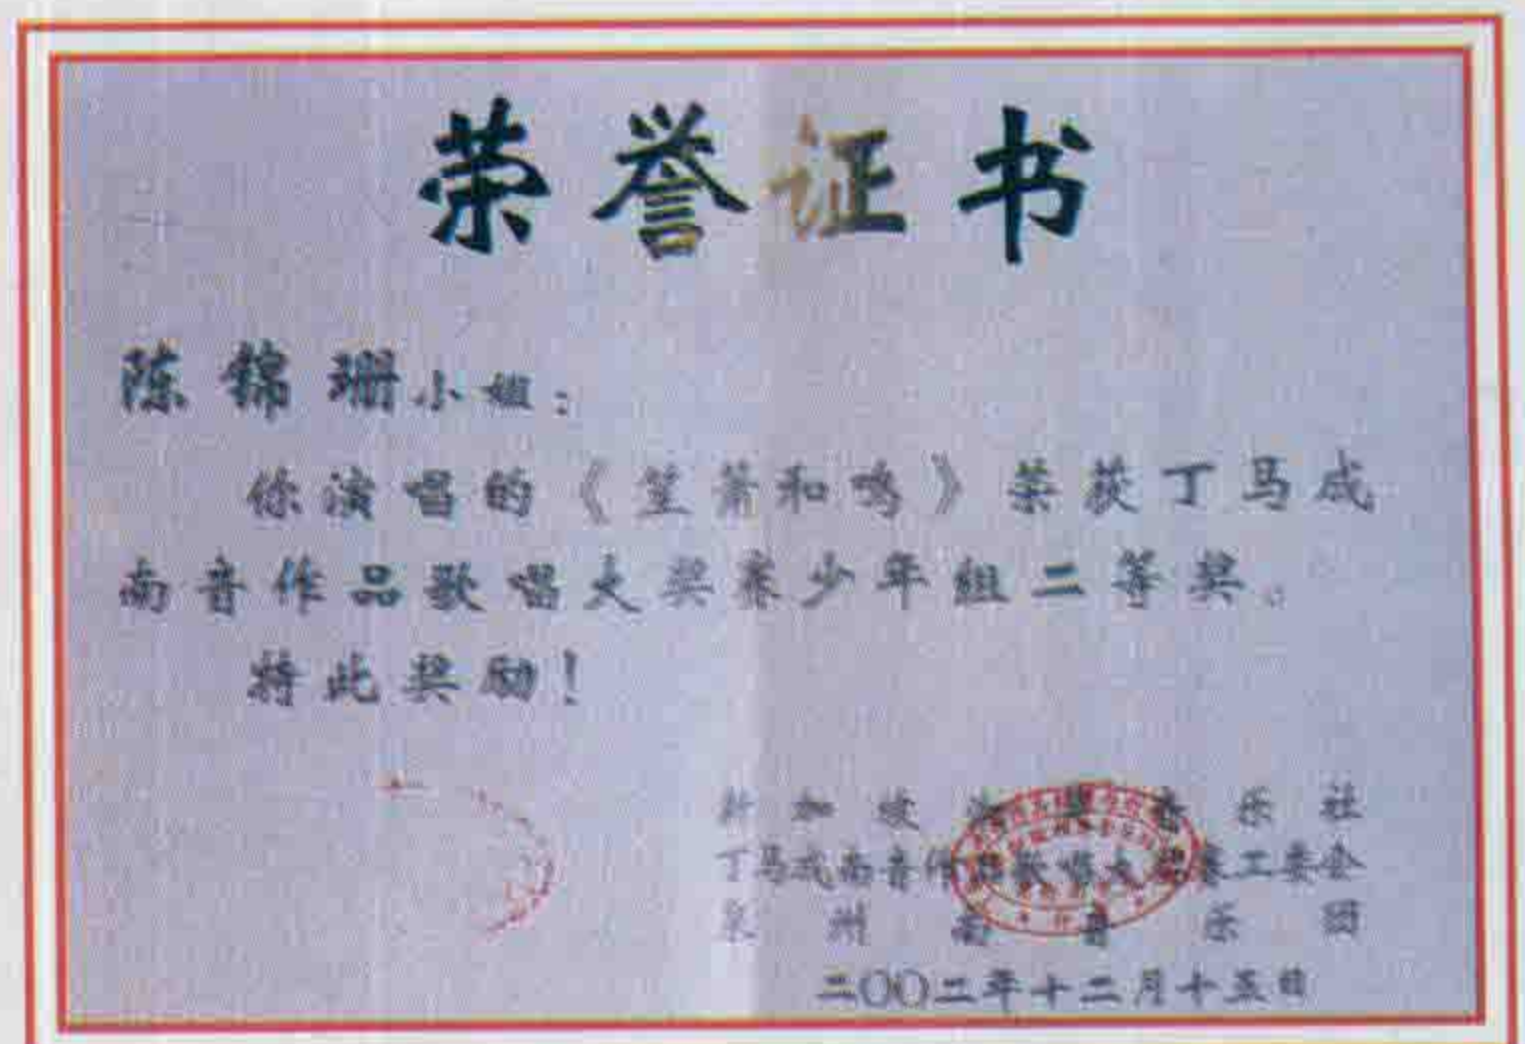 荣誉证书
陈锦珊小姐：
你演唱的《笙箫和鸣》荣获丁马成
南音作品歌唱大奖赛少年组二等奖。
特此奖励！
新加坡 乐社
丁马成南音作品歌唱大奖赛工委会
泉州南音乐团
二〇〇二年十二月十五日